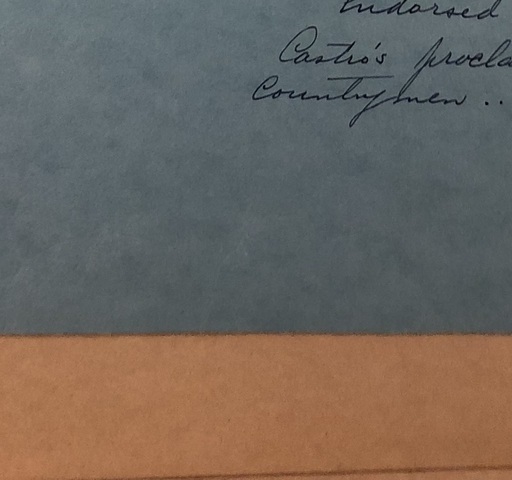 Endorsed
Castro's procla
Countrymen ..